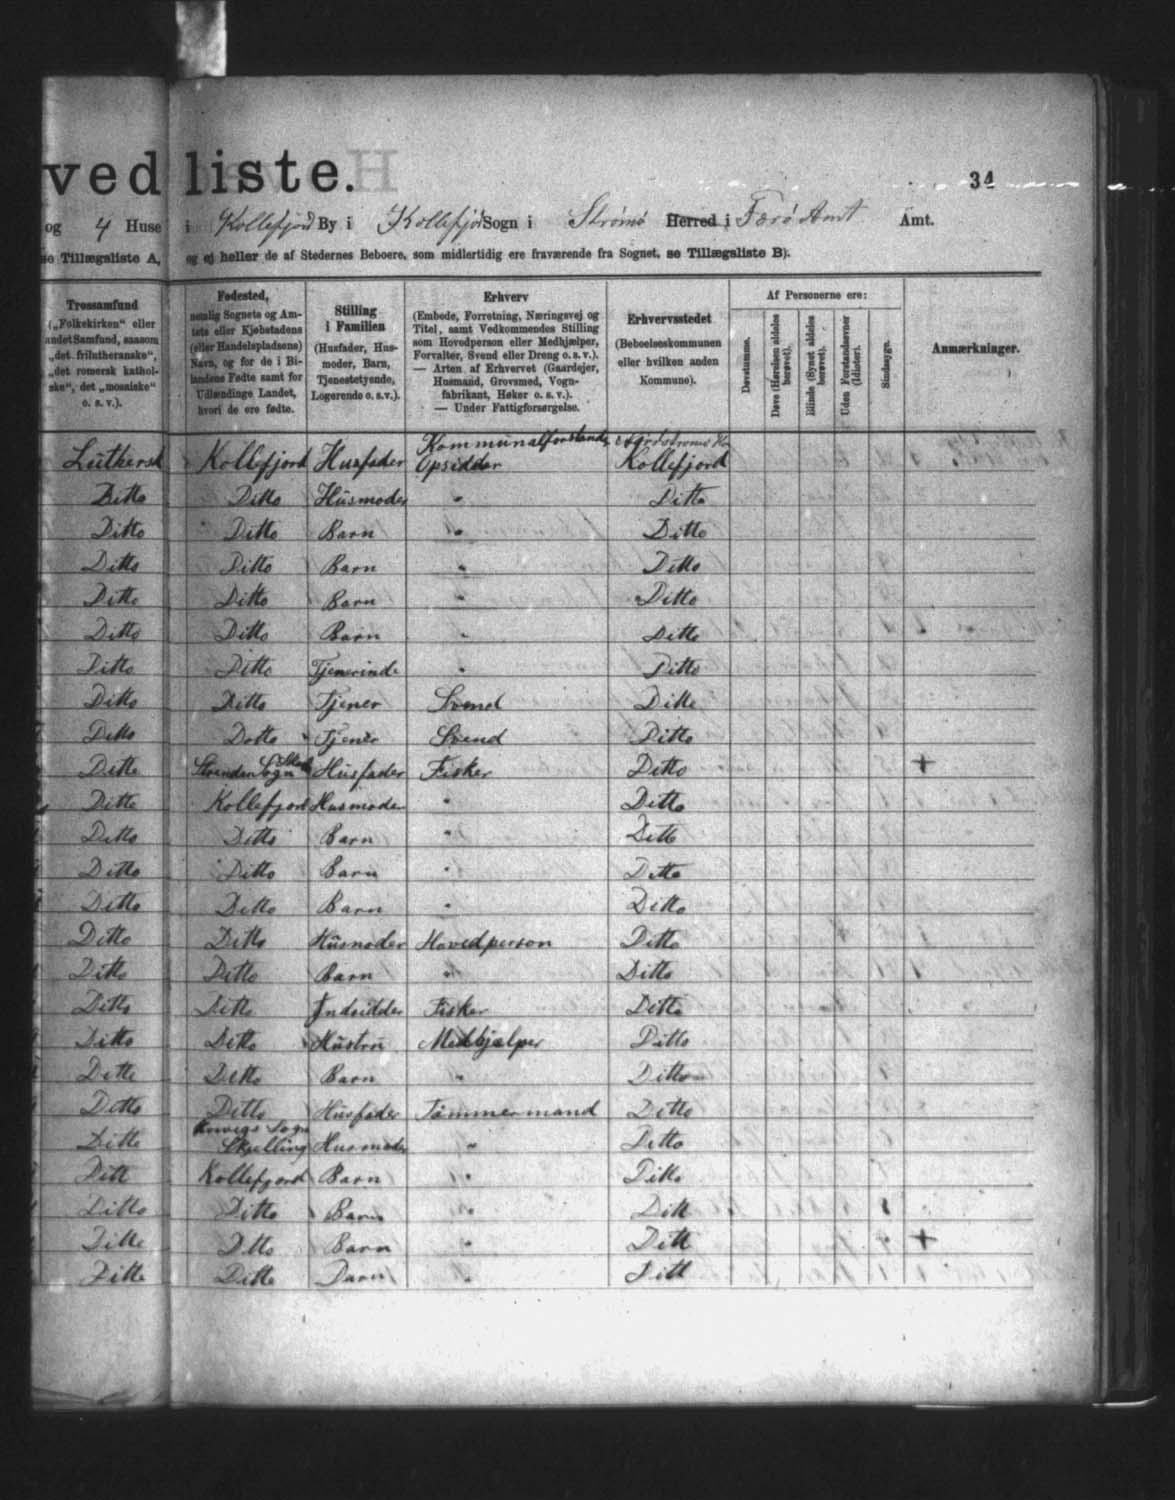 vedliste.
34
og 4 Huse i Kollefjord By i Kollefjord Sogn i Strømø Herred i Færø Amt Amt.
se Tillægsliste A, og ej heller de af Stedernes Beboere, som midlertidig ere fraværende fra Sognet, se Tillægsliste B).
Trossamfund
(„Folkekirken“ eller
andet Samfund, saasom
„det frilutheranske“,
„det romersk kathol-
ske“, det „mosaiske“
o. s. v.).
Fødested,
nemlig Sognets og Am-
tets eller Kjøbstadens
(eller Handelspladsens)
Navn, og for de i Bi-
landene Fødte samt for
Udlændinge Landet,
hvori de ere fødte.
Stilling
i Familien
(Husfader, Hus-
moder, Barn,
Tjenestetyende,
Logerende o. s. v.).
Erhverv
(Embede, Forretning, Næringsvej og
Titel, samt Vedkommendes Stilling
som Hovedperson eller Medhjælper,
Forvalter, Svend eller Dreng o. s. v.).
— Arten af Erhvervet (Gaardejer,
Husmand, Grovsmed, Vogn-
fabrikant, Høker o. s. v.).
— Under Fattigforsørgelse.
Erhvervsstedet
(Beboelseskommunen
eller hvilken anden
Kommune).
Af Personerne ere:
Døvstumme.
Døve (Hørelsen aldeles
berøvet).
Blinde (Synet aldeles
berøvet).
Uden Forstandsevner
(Idioter).
Sindssyge.
Anmærkninger.
Kommunalforstander
Luthersk Kollefjord Husfader Opsidder Kollefjord
Ditto Ditto Husmoder " Ditto
Ditto Ditto Barn " Ditto
Ditto Ditto Barn " Ditto
Ditto Ditto Barn " Ditto
Ditto Ditto Barn " Ditto
Ditto Ditto Tjenerinde " Ditto
Ditto Ditto Tjener Svend Ditto
Ditto Ditto Tjener Svend Ditto
Ditto Sogn Husfader Fisker Ditto +
Ditto Kollefjord Husmoder " Ditto
Ditto Ditto Barn " Ditto
Ditto Ditto Barn " Ditto
Ditto Ditto Barn " Ditto
Ditto Ditto Husmoder Hovedperson Ditto
Ditto Ditto Barn " Ditto
Ditto Ditto Indsidder Fisker Ditto
Ditto Ditto Hustru Medhjælper Ditto
Ditto Ditto Barn " Ditto
Ditto Ditto Husfader Tømmermand Ditto
Kvivigs Sogn
Ditto Skælling Husmoder " Ditto
Ditto Kollefjord Barn " Ditto
Ditto Ditto Barn " Ditto
Ditto Ditto Barn " Ditto +
Ditto Ditto Barn " Ditto